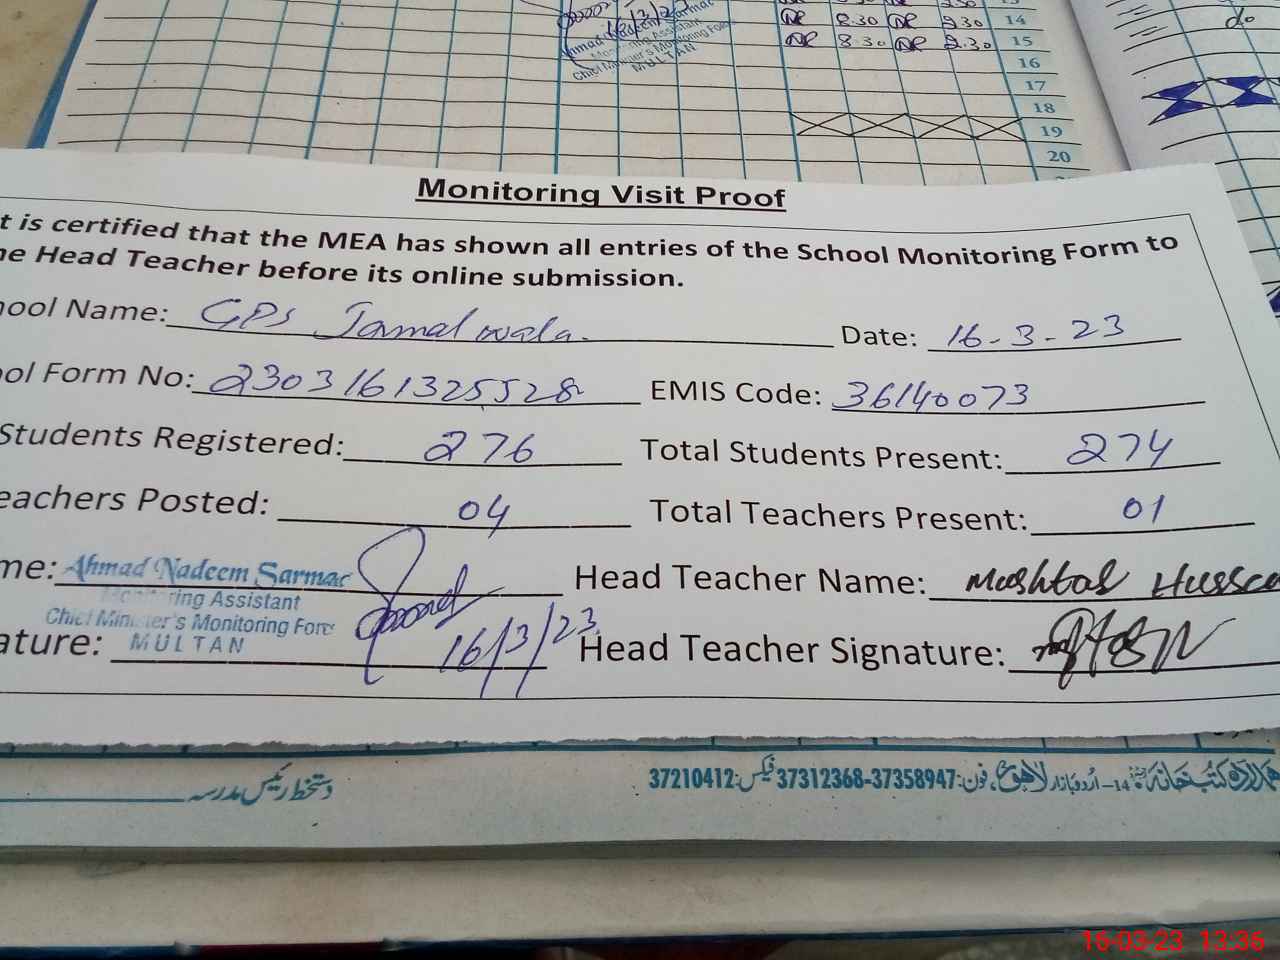 8.30 2.30 14
8.30 2.30 15
Monitoring Assistant
Chief Minister's Monitoring Force
MULTAN
16
17
18
19
20
do
Monitoring Visit Proof
t is certified that the MEA has shown all entries of the School Monitoring Form to
he Head Teacher before its online submission.
hool Name: GPS Jamal wala. Date: 16-3-23
ool Form No: 2303161325528 EMIS Code: 36140073
Students Registered: 276 Total Students Present: 274
eachers Posted: 04 Total Teachers Present: 01
me: Ahmad Nadeem Sarmad Head Teacher Name: Mushtaq Hussa
Monitoring Assistant
Chief Minister's Monitoring Force
MULTAN
ature: 16/3/23 Head Teacher Signature:
دستخط رئیس مدرسہ
کتب خانہ 14-اُردو بازار لاہور، فون: 37312368-37358947 فیکس: 37210412
16-03-23 13:36